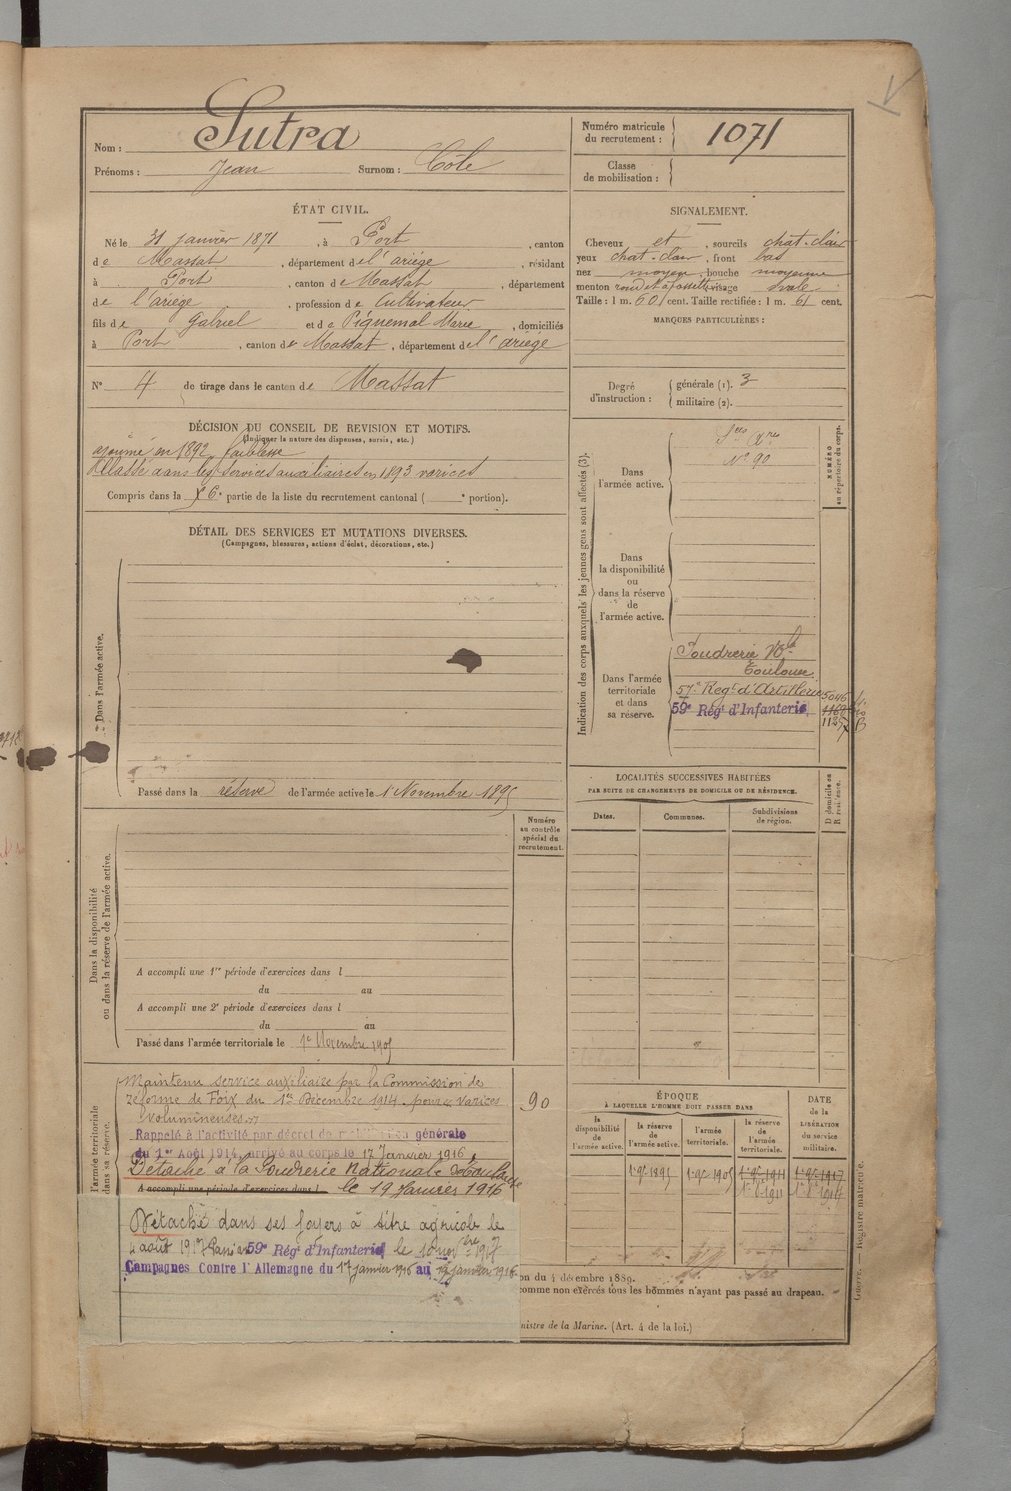 Nom : Sutra
Prénoms : Jean Surnom : Côte
Numéro matricule du recrutement : 1071
Classe de mobilisation :
ÉTAT CIVIL.
Né le 31 janvier 1871, à Port, canton
de Massat, département de l'ariège, résidant
à Port, canton de Massat, département
de l'ariège, profession de cultivateur
fils de Gabriel et de Piquemal Marie, domiciliés
à Port, canton de Massat, département de l'ariège
N° 4 de tirage dans le canton de Massat
SIGNALEMENT.
Cheveux et, sourcils chat-clair
yeux chat-clair, front bas
nez moyen, bouche moyenne
menton rond et à fossette, visage ovale
Taille : 1 m. 601 cent. Taille rectifiée : 1 m. 61 cent.
MARQUES PARTICULIÈRES :
Degré d'instruction : générale (1). 3
militaire (2).
DÉCISION DU CONSEIL DE REVISION ET MOTIFS.
(Indiquer la nature des dispenses, sursis, etc.)
ajourné en 1892 faiblesse
Classé dans les services auxiliaires en 1893 varices
Compris dans la 6e partie de la liste du recrutement cantonal ( e portion).
DÉTAIL DES SERVICES ET MUTATIONS DIVERSES.
(Campagnes, blessures, actions d'éclat, décorations, etc.)
Dans l'armée active.
Passé dans la réserve de l'armée active le 1 Novembre 1895
Indication des corps auxquels les jeunes gens sont affectés (3).
Dans l'armée active.
N° 90
NUMÉRO au répertoire du corps.
Dans la disponibilité ou dans la réserve de l'armée active.
Dans l'armée territoriale et dans sa réserve.
Poudrerie Nle
Toulouse.
57e Regt d'Artillerie 5046
59e Régt d'Infanterie
LOCALITÉS SUCCESSIVES HABITÉES
PAR SUITE DE CHANGEMENTS DE DOMICILE OU DE RÉSIDENCE.
D domicile ou R résidence.
Dates. Communes. Subdivisions de région.
Numéro au contrôle spécial du recrutement.
Dans la disponibilité ou dans la réserve de l'armée active.
A accompli une 1re période d'exercices dans l
du au
A accompli une 2e période d'exercices dans l
du au
Passé dans l'armée territoriale le 1er Novembre 1905
l'armée territoriale dans sa réserve.
Maintenu service auxiliaire par la Commission de
réforme de Foix du 1er Décembre 1914 pour varices 90
volumineuses
Rappelé à l'activité par décret de mobilisation générale
du 1er Août 1914, arrivé au corps le 17 Janvier 1916
Détaché à la Poudrerie Nationale de Toulouse
A accompli une période d'exercices dans l le 19 Janvier 1916
Détaché dans ses foyers à titre agricole le
4 août 1917 59e Régt d'Infanterie le 10 novbre 1917
Campagnes Contre l'Allemagne du 17 janvier 1916 au 19 janvier 1916
ÉPOQUE
À LAQUELLE L'HOMME DOIT PASSER DANS
DATE de la LIBÉRATION du service militaire.
la disponibilité de l'armée active. la réserve de l'armée active. l'armée territoriale. la réserve de l'armée territoriale.
1 9bre 1895 1 9bre 1905 1 9bre 1911 1 9bre 1917
on du 4 décembre 1889.
comme non exercés tous les hommes n'ayant pas passé au drapeau.
inistre de la Marine. (Art. 4 de la loi.)